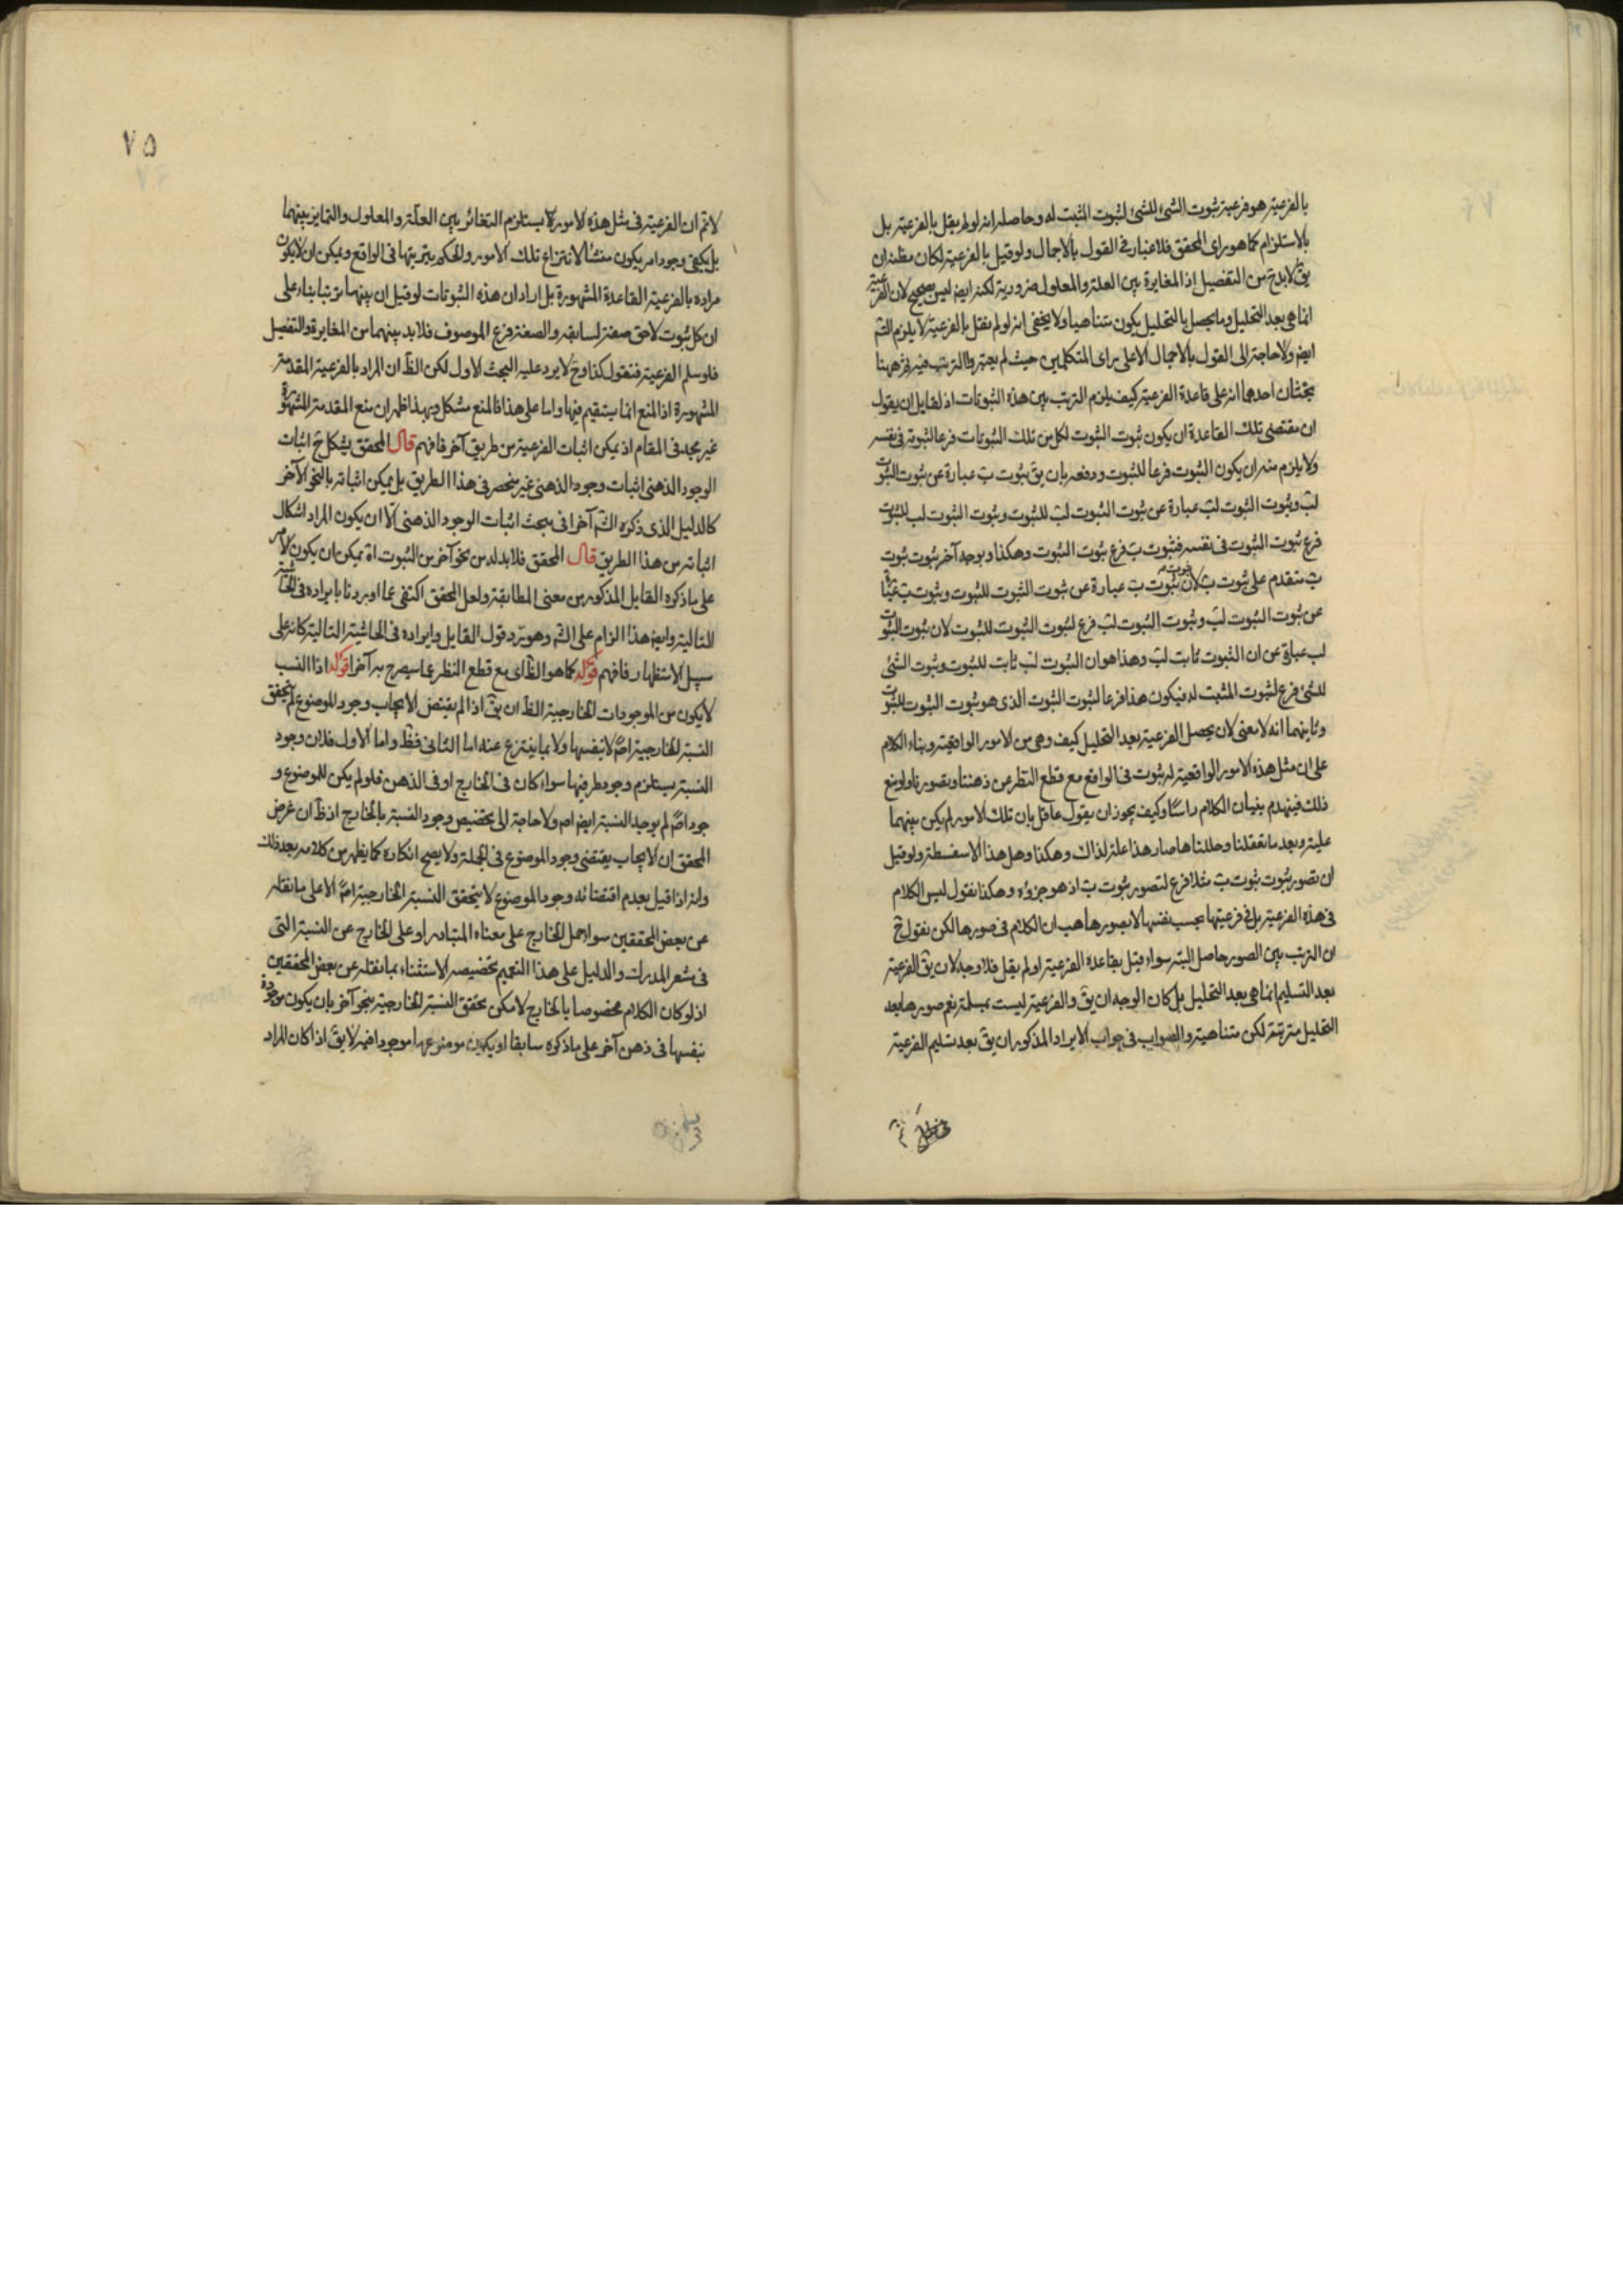 بالفرعية هو فرعية ثبوت الشئ للشئ لثبوت المثبت له وحاصله انه لو لم يقل بالفرعية بل
بالاستلزام كما هو راى المحقق فلا غبار فى القول بالاجمال ولو قيل بالفرعية لكان مظنة ان
يق لا بد ح من التفصيل اذ المغايرة بين العلة والمعلول ضرورية لكنه ايض ليس بصحيح لان الفرعية
انما هى بعد التحليل وما يحصل بالتحليل يكون متناهيا ولا يخفى انه لو لم نقل بالفرعية لا يلزم التم
ايض ولا حاجة الى القول بالاجمال الا على راى المتكلمين حيث لم يعتبروا الترتيب فيه ثم ههنا
بحثان احدهما انه على قاعدة الفرعية كيف يلزم الترتب بين هذه الثبوتات اذ لقايل ان يقول
ان مقتضى تلك القاعدة ان يكون ثبوت الثبوت لكل من تلك الثبوتات فرعا لثبوته فى نفسه
ولا يلزم منه ان يكون الثبوت فرعا للثبوت ودفعه بان يق ثبوت ب عبارة عن ثبوت الثبوت
لب وثبوت الثبوت لب عبارة عن ثبوت الثبوت لب للثبوت وثبوت الثبوت لب للثبوت
فرع ثبوت الثبوت فى نفسه فثبوت ب فرع ثبوت الثبوت وهكذا وبوجه آخر ثبوت ثبوت
ب متقدم على ثبوت ب لان ثبوت ثبوت ب عبارة عن ثبوت الثبوت للثبوت وثبوت ب عبارة
عن ثبوت الثبوت لب وثبوت الثبوت لب فرع لثبوت الثبوت للثبوت لان ثبوت الثبوت
لب عبارة عن ان الثبوت ثابت لب وهذا هو ان الثبوت لب ثابت للثبوت وثبوت الشئ
للشئ فرع لثبوت المثبت له فيكون هذا فرعا لثبوت الثبوت الذى هو ثبوت الثبوت للثبوت
وثانيهما انه لا معنى لان يحصل الفرعية بعد التحليل كيف وهى من الامور الواقعية وبناء الكلام
على ان مثل هذه الامور الواقعية له ثبوت فى الواقع مع قطع النظر عن ذهننا وتصورنا ولو منع
ذلك فينهدم بنيان الكلام راسا وكيف يجوز ان يقول عاقل بان تلك الامور لم يكن بينهما
علية وبعد ما تعقلنا وحللناها صار هذا علة لذاك وهكذا وهل هذا الا سفسطة ولو قيل
ان تصور ثبوت ثبوت ب مثلا فرع لتصور ثبوت ب اذ هو جزؤه وهكذا نقول ليس الكلام
فى هذه الفرعية بل فى فرعيتها بحسب نفسها لا بصورها هب ان الكلام فى صورها لكن نقول ح
ان الترتب بين الصور حاصل البته سواء قيل بقاعدة الفرعية او لم يقل فلا وجه لان يق الفرعية
بعد التسليم انما هى بعد التحليل بل كان الوجه ان يق والفرعية ليست بمسلمة نعم صورها بعد
التحليل مترتبة لكن متناهية والصواب فى جواب الايراد المذكور ان يق بعد تسليم الفرعية
٧٥
لانم ان الفرعية فى مثل هذه الامور لا يستلزم التغائر بين العلة والمعلول والتمايز بينهما
بل يكفى وجود امر يكون منشأ لانتزاع تلك الامور والحكم بترتبها فى الواقع ويمكن ان لا يكون
مراده بالفرعية القاعدة المشهورة بل اراد ان هذه الثبوتات لو قيل ان بينهما ترتبا بناء على
ان كل ثبوت لاحق صفة لسابقه والصفة فرع الموصوف فلا بد بينهما من المغايرة والتفصيل
فلو سلم الفرعية فنقول كذا وح لا يرد عليه البحث الاول لكن الظ ان المراد بالفرعية المقدمة
المشهورة اذ المنع انما يستقيم فيها واما على هذا فالمنع مشكل وبهذا ظهر ان منع المقدمة المشهورة
غير مجد فى المقام اذ يمكن اثبات الفرعية من طريق آخر فافهم قال المحقق يشكل ح اثبات
الوجود الذهنى اثبات وجود الذهنى غير منحصر فى هذا الطريق بل يمكن اثباته بالنحو الآخر
كالدليل الذى ذكره الشم آخرا فى مبحث اثبات الوجود الذهنى الا ان يكون المراد اشكال
اثباته من هذا الطريق قال المحقق فلا بد له من نحو آخر من الثبوت اه يمكن ان يكون الامر
على ما ذكره القايل المذكور من معنى المطابقة ولعل المحقق اكتفى عما اوردنا بايراده فى الحاشية
التالية وايض هذا الزام على الشم وهو يرد قول القايل وايراده فى الحاشية التالية كانه على
سبيل الاستظهار فافهم قوله كما هو الظ اى مع قطع النظر عما سيصرح به آخرا قوله اذا النسب
لا يكون من الموجودات الخارجية الظ ان يق اذا لم يقتض الايجاب وجود الموضوع لم يتحقق
النسبة الخارجية اصلا لا بنفسها ولا بما ينتزع عنه اما الثانى فظ واما الاول فلان وجود
النسبة يستلزم وجود طرفيها سواء كان فى الخارج او فى الذهن فلو لم يكن للموضوع و
جود اصلا لم يوجد النسبة ايض اصلا ولا حاجة الى تخصيص وجود النسبة بالخارج اذ ظ ان غرض
المحقق ان الايجاب يقتضى وجود الموضوع فى الجملة ولا يصح انكاره كما يظهر من كلامه بعد ذلك
وانه اذا قيل بعدم اقتضائه وجود الموضوع لا يتحقق النسبة الخارجية اصلا الا على ما نقله
عن بعض المحققين سواء حمل الخارج على معناه المتبادر او على الخارج عن النسبة التى
فى مشعر المدرك والدليل على هذا التعميم تخصيصه الاستثناء بما نقله عن بعض المحققين
اذ لو كان الكلام مخصوصا بالخارج لامكن تحقق النسبة الخارجية بنحو آخر بان يكون موجودة
بنفسها فى ذهن آخر على ما ذكره سابقا او يكون موضوعها موجودا فيه لا يق اذا كان المراد